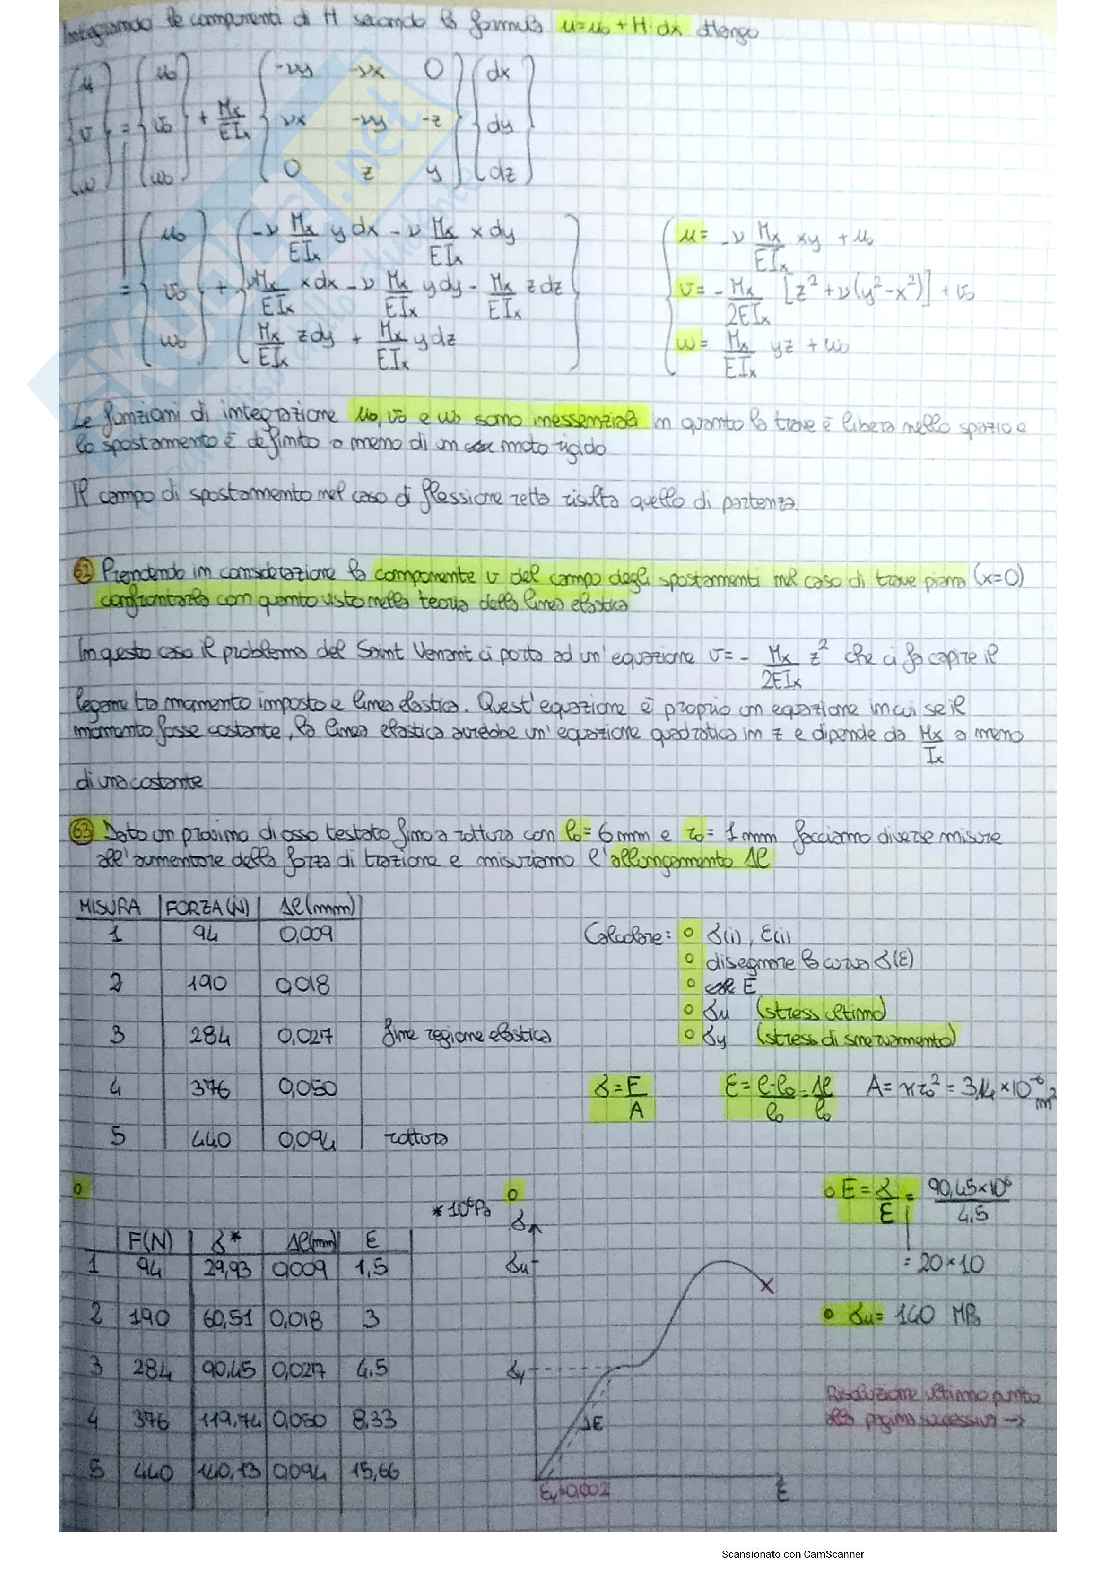 Integrando le componenti di H secondo la formula u=u₀+H·dx ottengo
{u v w} = {u₀ v₀ w₀} + Mx/EIx (-νy -νx 0
νx -νy -z
0 z y) {dx dy dz}
= {u₀ v₀ w₀} + { -ν Mx/EIx y dx - ν Mx/EIx x dy
ν Mx/EIx x dx - ν Mx/EIx y dy - Mx/EIx z dz
Mx/EIx z dy + Mx/EIx y dz }
u = -ν Mx/EIx xy + u₀
v = - Mx/2EIx [z²+ν(y²-x²)] + v₀
w = Mx/EIx yz + w₀
Le funzioni di integrazione u₀, v₀ e w₀ sono inessenziali in quanto la trave è libera nello spazio e
lo spostamento è definito a meno di un moto rigido
Il campo di spostamento nel caso di flessione retta risulta quello di partenza.
62 Prendendo in considerazione la componente v del campo degli spostamenti nel caso di trave piana (x=0)
confrontarla con quanto visto nella teoria della linea elastica
In questo caso il problema del Saint Venant ci porta ad un'equazione v = - Mx/2EIx z² che ci fa capire il
legame tra momento imposto e linea elastica. Quest'equazione è proprio un equazione in cui se il
momento fosse costante, la linea elastica avrebbe un'equazione quadratica in z e dipende da Mx/Ix a meno
di una costante
63 Dato un provino di osso testato fino a rottura con l₀=6mm e r₀=1mm facciamo diverse misure
all'aumentare della forza di trazione e misuriamo l'allungamento Δl
MISURA FORZA(N) Δl(mm)
1 94 0,009
2 190 0,018
3 284 0,027 fine regione elastica
4 376 0,050
5 440 0,094 rottura
Calcolare: o σ(i), ε(i)
o disegnare la curva σ(ε)
o E
o σu (stress ultimo)
o σy (stress di snervamento)
σ=F/A ε=l-l₀/l₀=Δl/l₀ A=πr₀²=3,14×10⁻⁶ m²
o
*10⁶Pa
F(N) σ* Δl(mm) ε
1 94 29,93 0,009 1,5
2 190 60,51 0,018 3
3 284 90,45 0,027 4,5
4 376 119,74 0,050 8,33
5 440 140,13 0,094 15,66
o
σ
σu
σy
ΔE
εy=0,002
ε
o E=σ/ε=90,45×10⁶/4,5
=20×10
o σu=140 MPa
Risoluzione ultimo punto
alla pagina successiva →
Scansionato con CamScanner